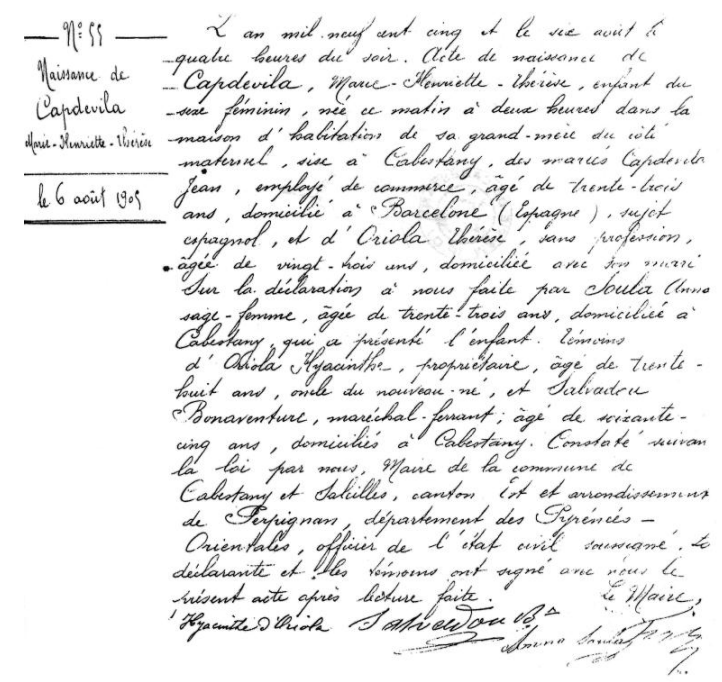 N° 55
Naissance de
Capdevila
Marie-Henriette-Thérèse
le 6 août 1905
L'an mil neuf cent cinq et le six août à
quatre heures du soir. Acte de naissance de
Capdevila, Marie-Henriette-Thérèse, enfant du
sexe féminin, née ce matin à deux heures dans la
maison d'habitation de sa grand-mère du côté
maternel, sise à Cabestany, des mariés Capdevila
Jean, employé de commerce, âgé de trente-trois
ans, domicilié à Barcelone (Espagne), sujet
espagnol, et d'Oriola Thérèse, sans profession,
âgée de vingt-trois ans, domiciliée avec son mari
Sur la déclaration à nous faite par Soula Anna
sage-femme, âgée de trente-trois ans, domiciliée à
Cabestany, qui a présenté l'enfant. Témoins
d'Oriola Hyacinthe, propriétaire, âgé de trente-
huit ans, oncle du nouveau-né, et Salvadou
Bonaventure, maréchal-ferrant; âgé de soixante-
cinq ans, domiciliés à Cabestany. Constaté suivan
la loi par nous, Maire de la commune de
Cabestany et Saleilles, canton Est et arrondissement
de Perpignan, département des Pyrénées-
Orientales, officier de l'état civil soussigné. La
déclarante et les témoins ont signé avec nous le
présent acte après lecture faite. Le Maire,
Hyacinthe d'Oriola Salvadou Bre